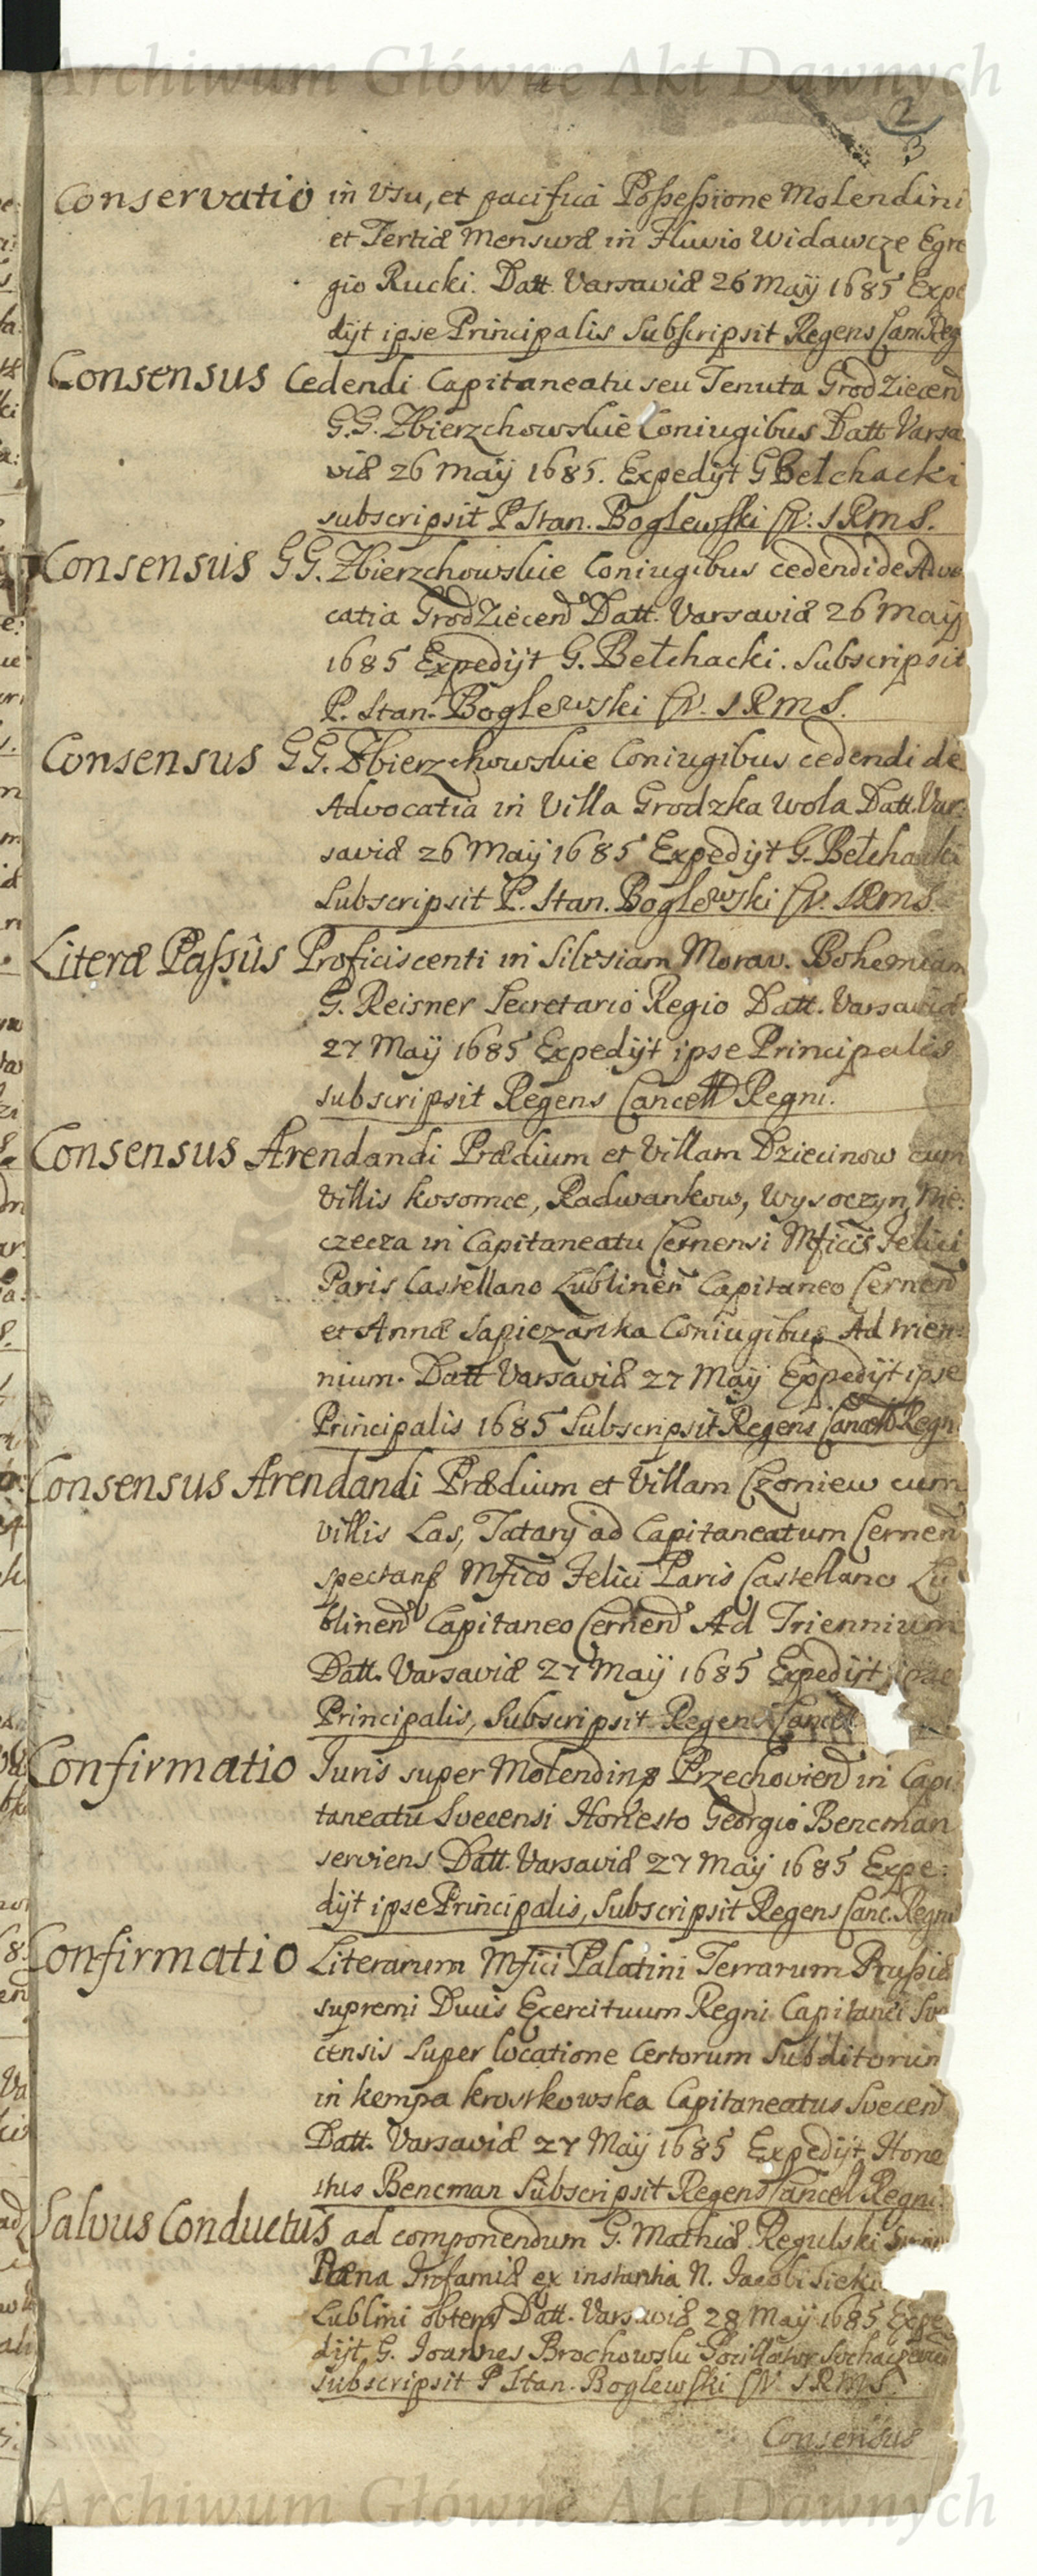 Archiwum Główne Akt Dawnych
2
3
Conservatio in Usu, et pacifica Possessione Molendini
et Tertiæ Mensuræ in Fluvio Widawcze Egre
gio Rucki. Datt. Varsaviæ 26 Maÿ 1685 Expe
dijt ipse Principalis Subscripsit Regens Canc Reg
Consensus Cedendi Capitaneatu seu Tenuta Grodziecen
G.G. Zbierzchowskie Coniugibus Datt Varsa
viæ 26 Maÿ 1685. Expedijt G Bełchacki
subscripsit P Stan. Boglewski SRMS.
Consensus GG. Zbierzchowskie Coniugibus cedendi de Advo
catia Grodziecen Datt. Varsaviæ 26 Maÿ
1685 Expedijt G. Bełchacki. Subscripsit
P. Stan. Boglewski SRMS.
Consensus GG. Zbierzchowskie Coniugibus cedendi de
Advocatia in Villa Grodzka Wola Datt. Var:
saviæ 26 Maÿ 1685 Expedijt G. Bełchacki
Subscripsit P. Stan. Boglewski SRMS.
Literæ Passûs Proficiscenti in Silesiam Morav. Bohemiam
G. Reisner Secretario Regio Datt. Varsaviæ
27 Maÿ 1685 Expedijt ipse Principalis
subscripsit Regens Cancell Regni.
Consensus Arendandi Prædium et Villam Dziecinow cum
Villis Kosomce, Radwankow, Wysoczyn, Nie:
czecza in Capitaneatu Cernensi Mficis Felici
Paris Castellano Lublinen Capitaneo Cernen
et Annæ Sapiezanka Coniugibus Ad trien:
nium. Datt Varsaviæ 27 Maÿ Expedijt ipse
Principalis 1685 Subscripsit Regens Cancell Regn
Consensus Arendandi Prædium et Villam Czoniew cum
villis Las, Tatary ad Capitaneatum Cernen
spectans Mfico Felici Paris Castellano Lu
blinen Capitaneo Cernen Ad Triennium
Datt. Varsaviæ 27 Maÿ 1685 Expedijt ipse
Principalis, Subscripsit Regens Cancel
Confirmatio Iuris super Molendinũ Przechovien in Capi
taneatu Svecensi Honesto Georgio Bencman
serviens Datt. Varsaviæ 27 Maÿ 1685 Expe:
dijt ipse Principalis, Subscripsit Regens Canc. Regni
Confirmatio Literarum Mfici Palatini Terrarum Prussiæ
supremi Ducis Exercituum Regni Capitanei Sve
censis Super locatione Certorum Subditorum
in Kempa Krostkowska Capitaneatus Svecen
Datt. Varsaviæ 27 Maÿ 1685 Expedijt Hone
stus Bencman Subscripsit Regens Cancel Regni.
Salvus Conductus ad componendum G. Mathiæ Regulski
Pæna Infamiæ ex instantia N. Jacobi Sieki
Lublini obtent Datt. Varsaviæ 28 Maÿ 1685 Expe
dijt G. Joannes Brochowski Pocillator Sochacevien
subscripsit P Stan. Boglewski SRMS.
Consensus
Archiwum Główne Akt Dawnych